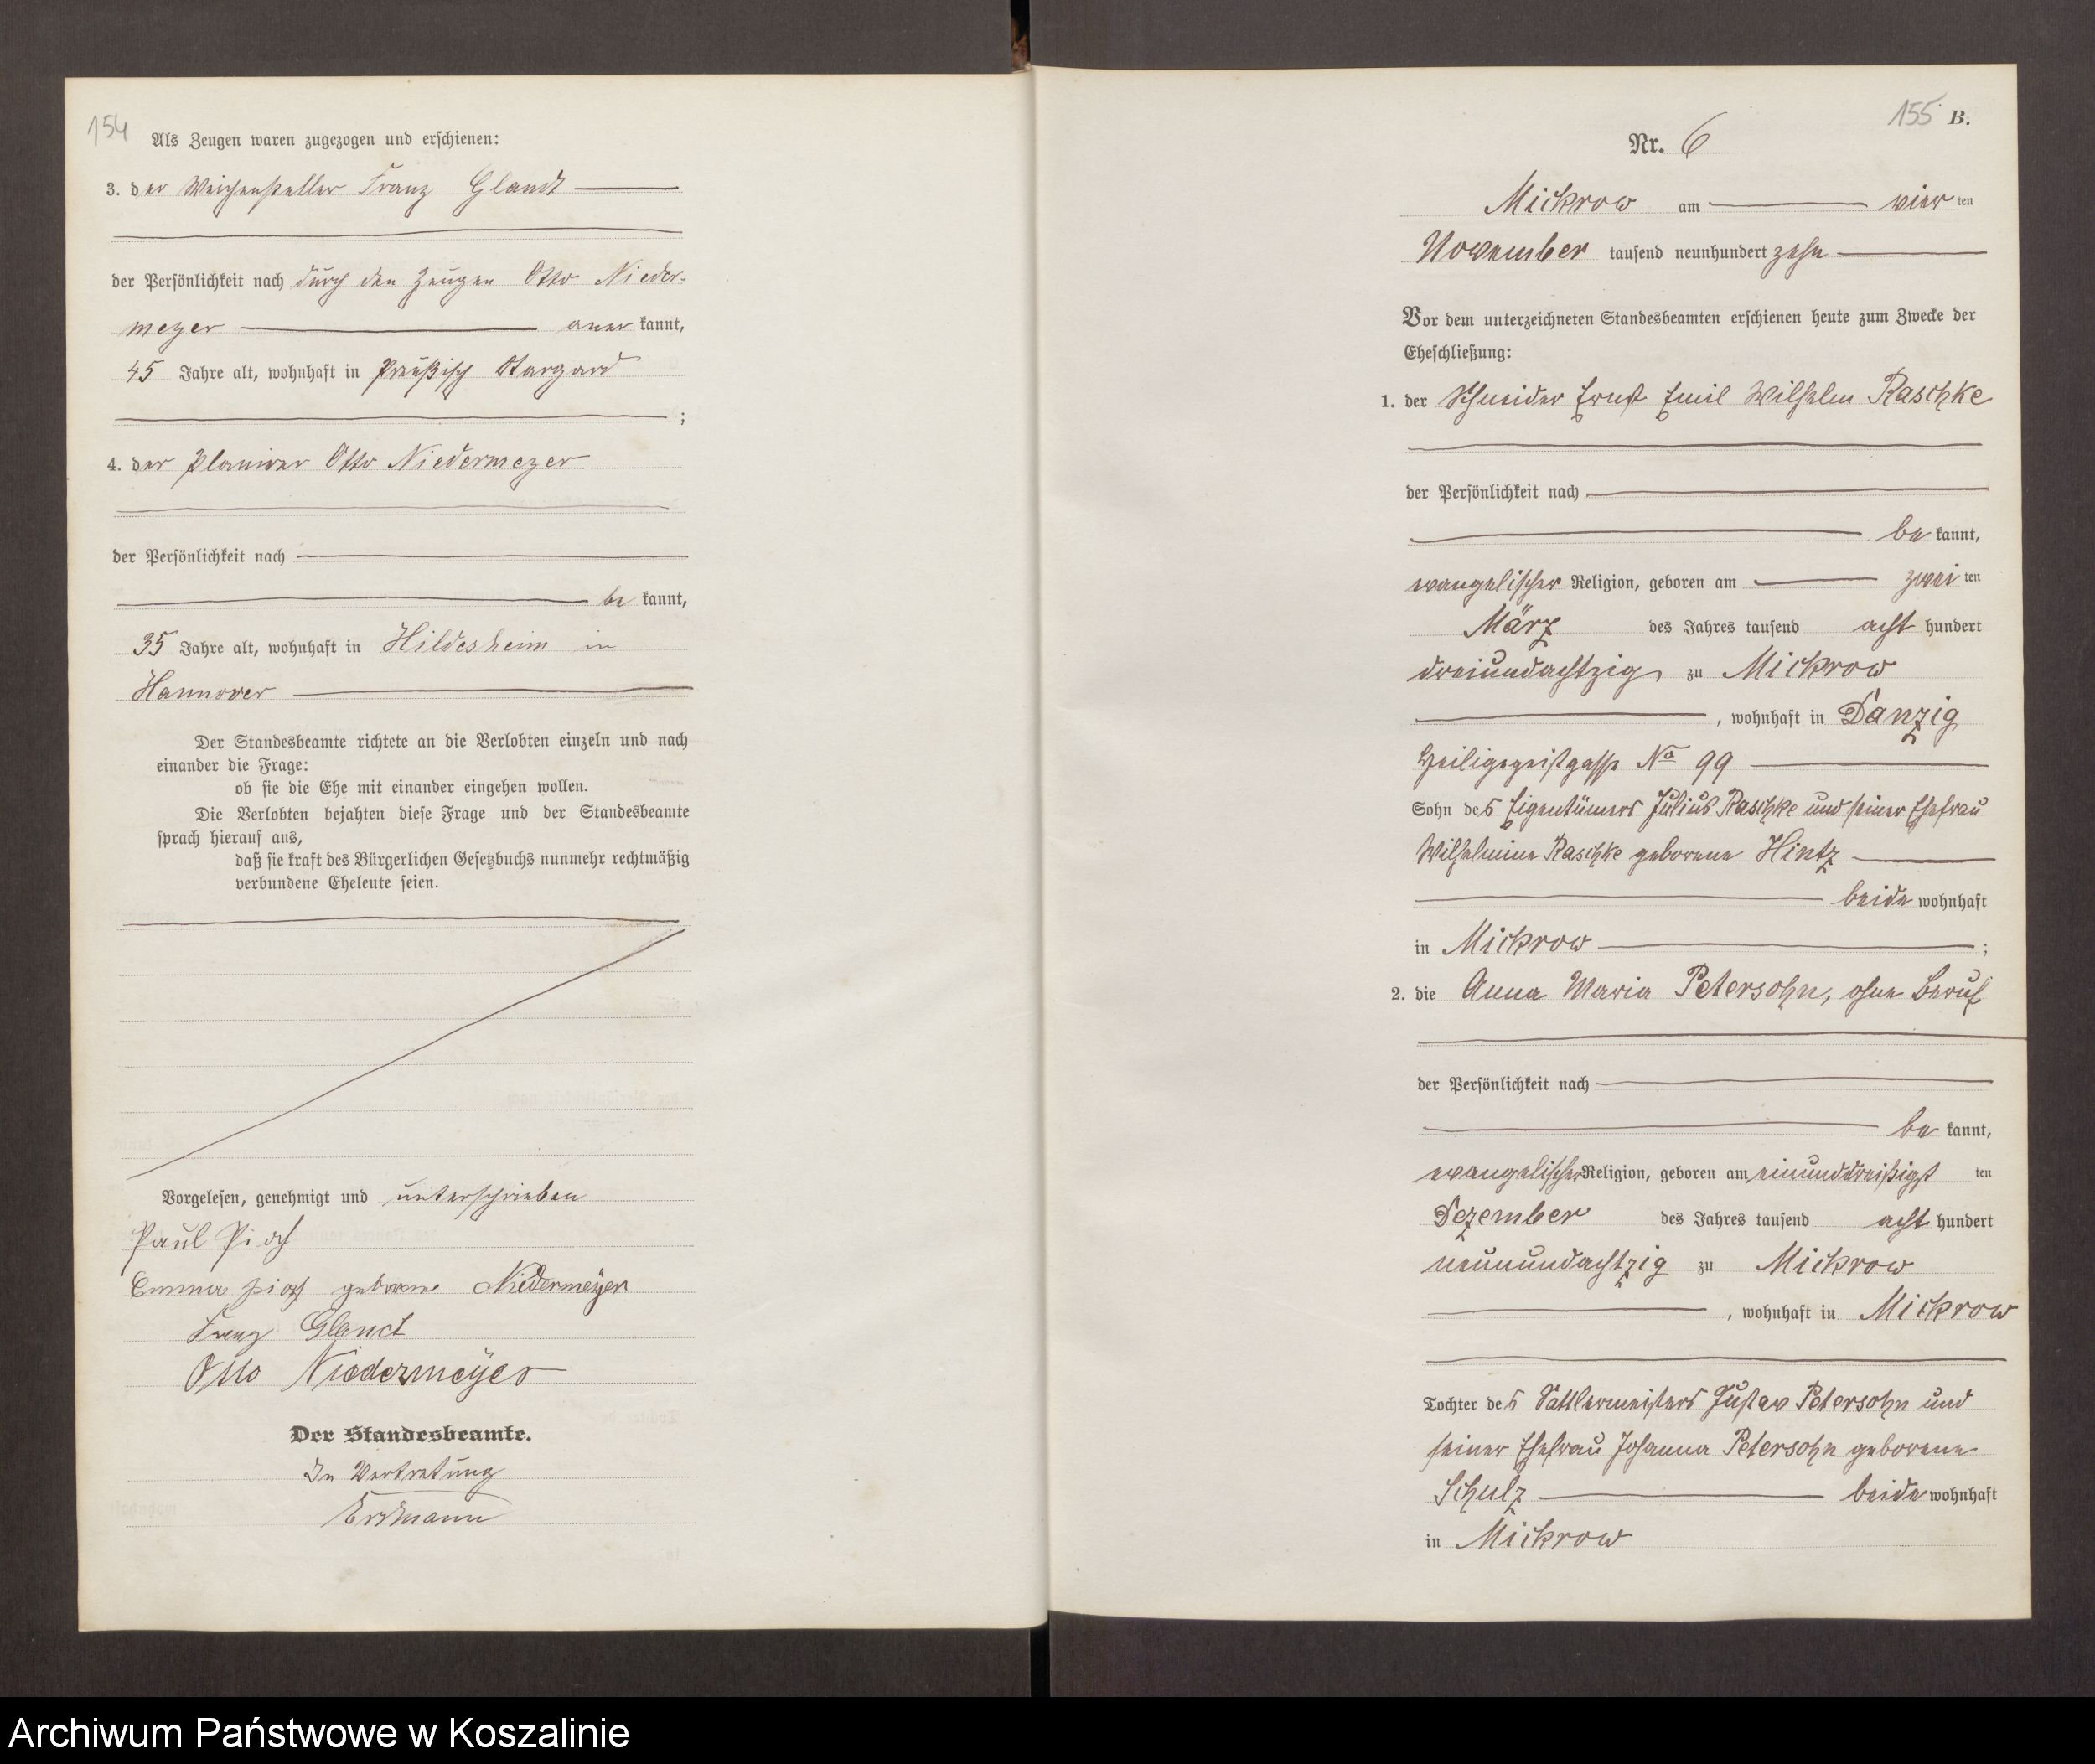 154
Als Zeugen waren zugezogen und erschienen:
3. der Weichensteller Franz Glandt
der Persönlichkeit nach durch den Zeugen Otto Nieder-
meyer anerkannt,
45 Jahre alt, wohnhaft in Preußisch Stargard
;
4. der Otto Niedermeyer
der Persönlichkeit nach
bekannt,
35 Jahre alt, wohnhaft in Hildesheim in
Hannover
Der Standesbeamte richtete an die Verlobten einzeln und nach
einander die Frage:
ob sie die Ehe mit einander eingehen wollen.
Die Verlobten bejahten diese Frage und der Standesbeamte
sprach hierauf aus,
daß sie kraft des Bürgerlichen Gesetzbuchs nunmehr rechtmäßig
verbundene Eheleute seien.
Vorgelesen, genehmigt und unterschrieben
Paul Pioch
Emma Pioch geborene Niedermeyer
Franz Glandt
Otto Niedermeyer
Der Standesbeamte.
In Vertretung
Erdmann
155 B.
Nr. 6
Mickrow am vierten
November tausend neunhundert zehn
Vor dem unterzeichneten Standesbeamten erschienen heute zum Zwecke der
Eheschließung:
1. der Schneider Ernst Emil Wilhelm Raschke
der Persönlichkeit nach
bekannt,
evangelischer Religion, geboren am zweiten
März des Jahres tausend acht hundert
dreiundachtzig zu Mickrow
, wohnhaft in Danzig
Heiligegeistgasse No 99
Sohn des Eigentümers Julius Raschke und seiner Ehefrau
Wilhelmine Raschke geborene Hintz
beide wohnhaft
in Mickrow ;
2. die Anna Maria Petersohn, ohne Beruf
der Persönlichkeit nach
bekannt,
evangelischer Religion, geboren am einunddreißigsten
Dezember des Jahres tausend acht hundert
neunundachtzig zu Mickrow
, wohnhaft in Mickrow
Tochter des Sattlermeisters Gustav Petersohn und
seiner Ehefrau Johanna Petersohn geborene
Schulz beide wohnhaft
in Mickrow
Archiwum Państwowe w Koszalinie